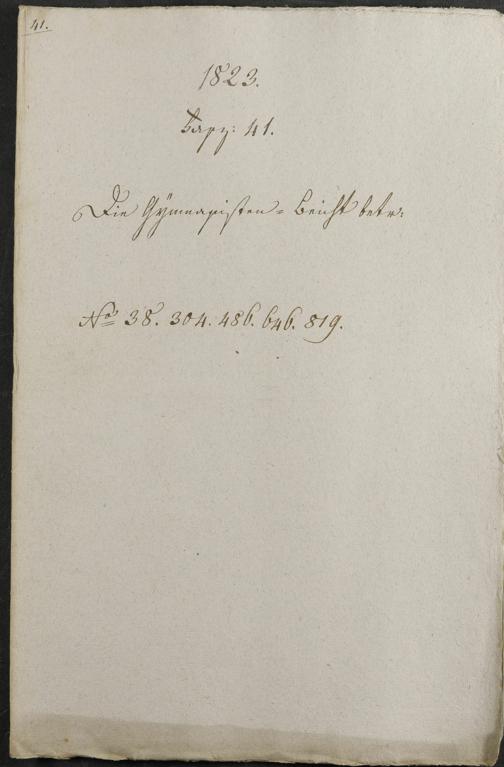 41.
1823.
Fasz: 41.
Die Gÿmnasisten-Beicht betr:
No 38. 304. 486. 646. 819.